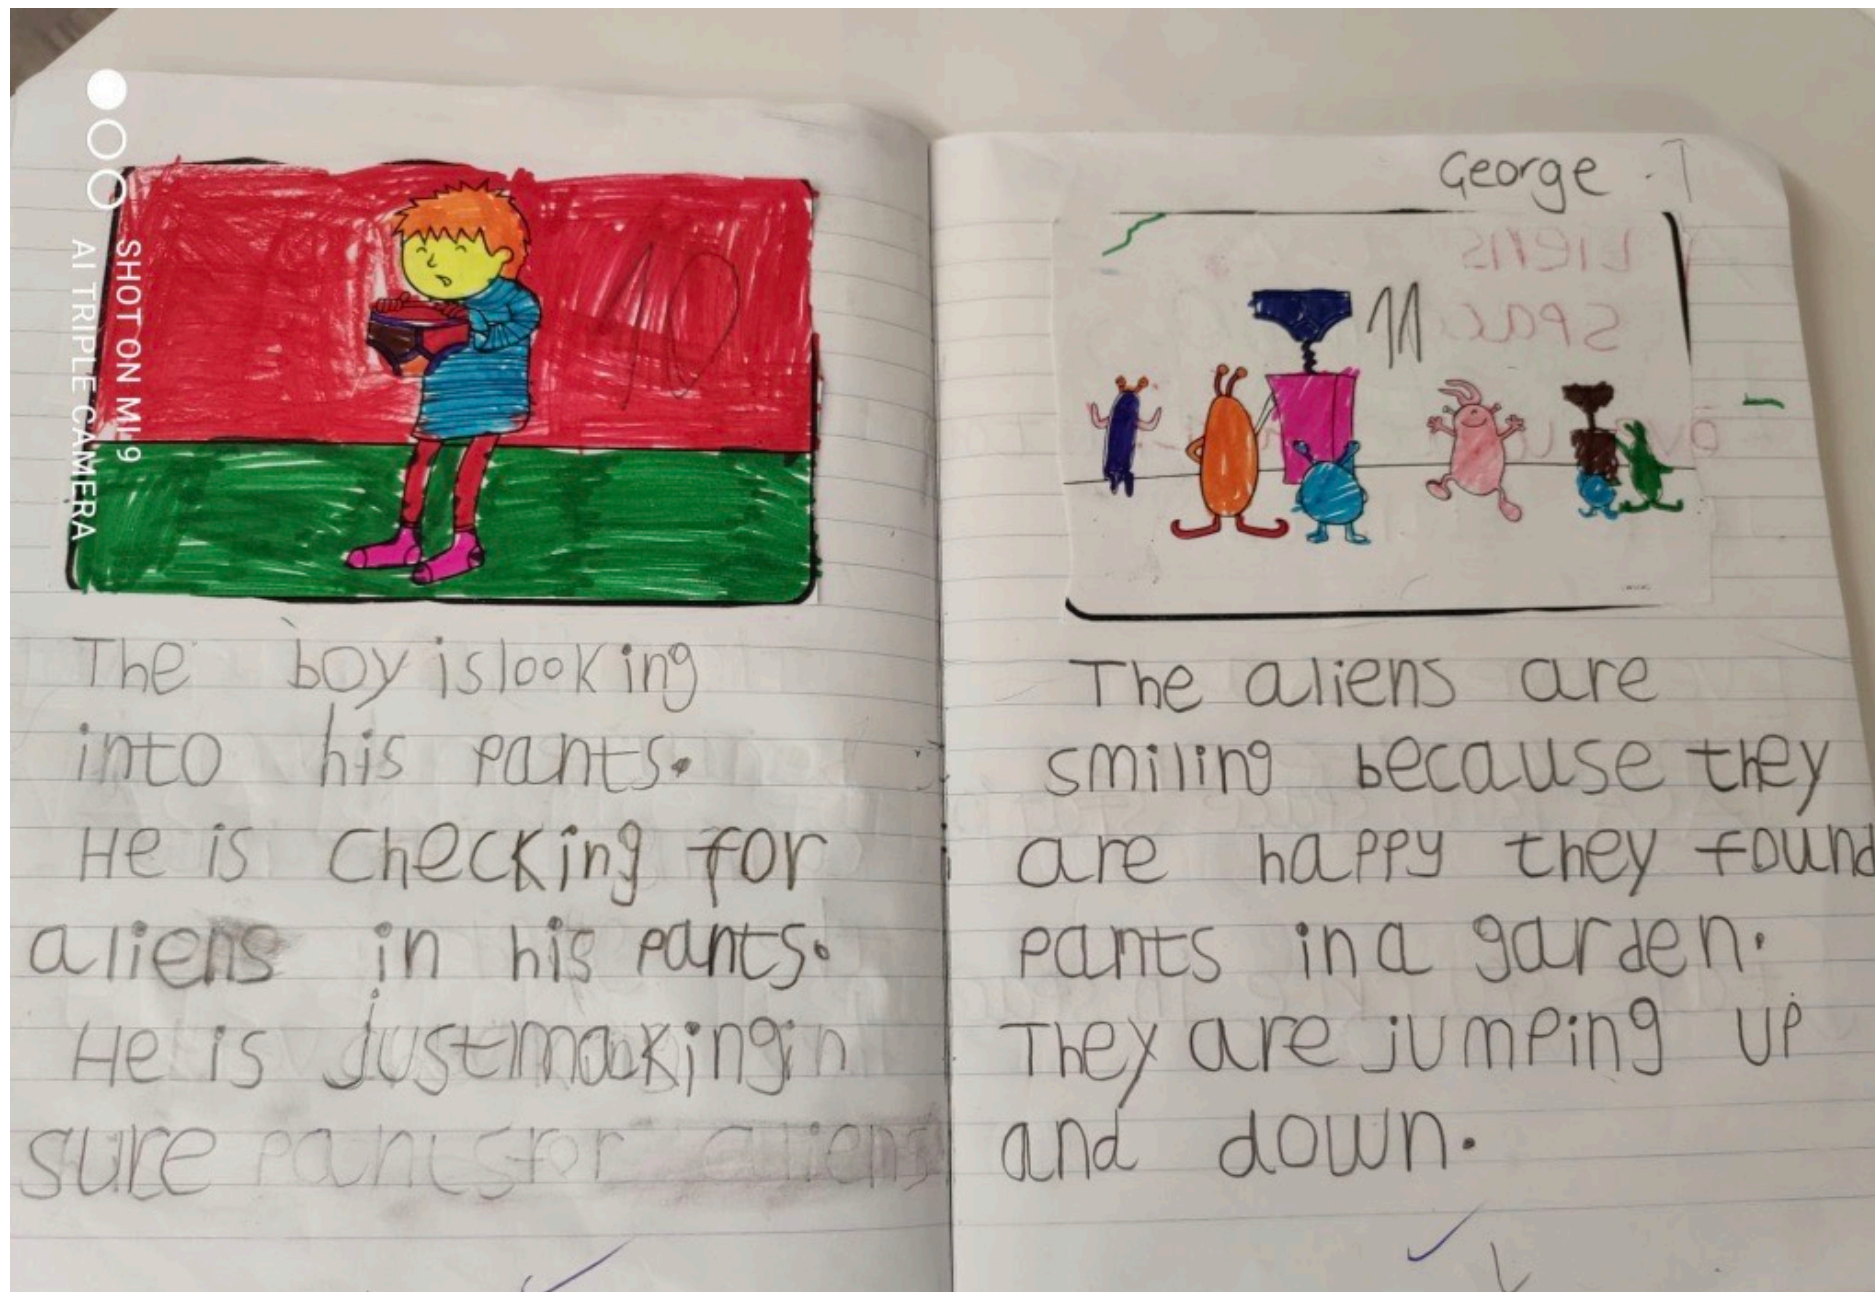 SHOT ON MI 9
AI TRIPLE CAMERA
10
The boy is looking
into his pants.
He is checking for
aliens in his pants.
He is just making
sure pants for aliens
George
11
The aliens are
smiling because they
are happy they found
pants in a garden.
They are jumping up
and down.